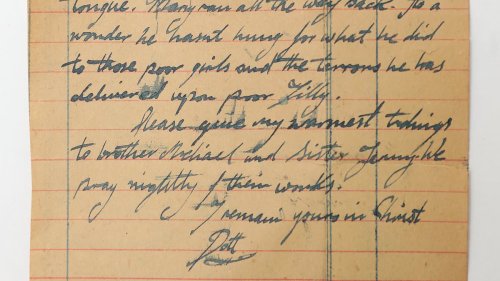 tongue. Mary ran all the way back. Its a
wonder he hasnt hung for what he did
to those poor girls and the terrors he has
delivered upon poor Tilly.
Please give my warmest tidings
to brother Michael and Sister Jenny We
pray nightly of their
I remain yours in Christ
Dott